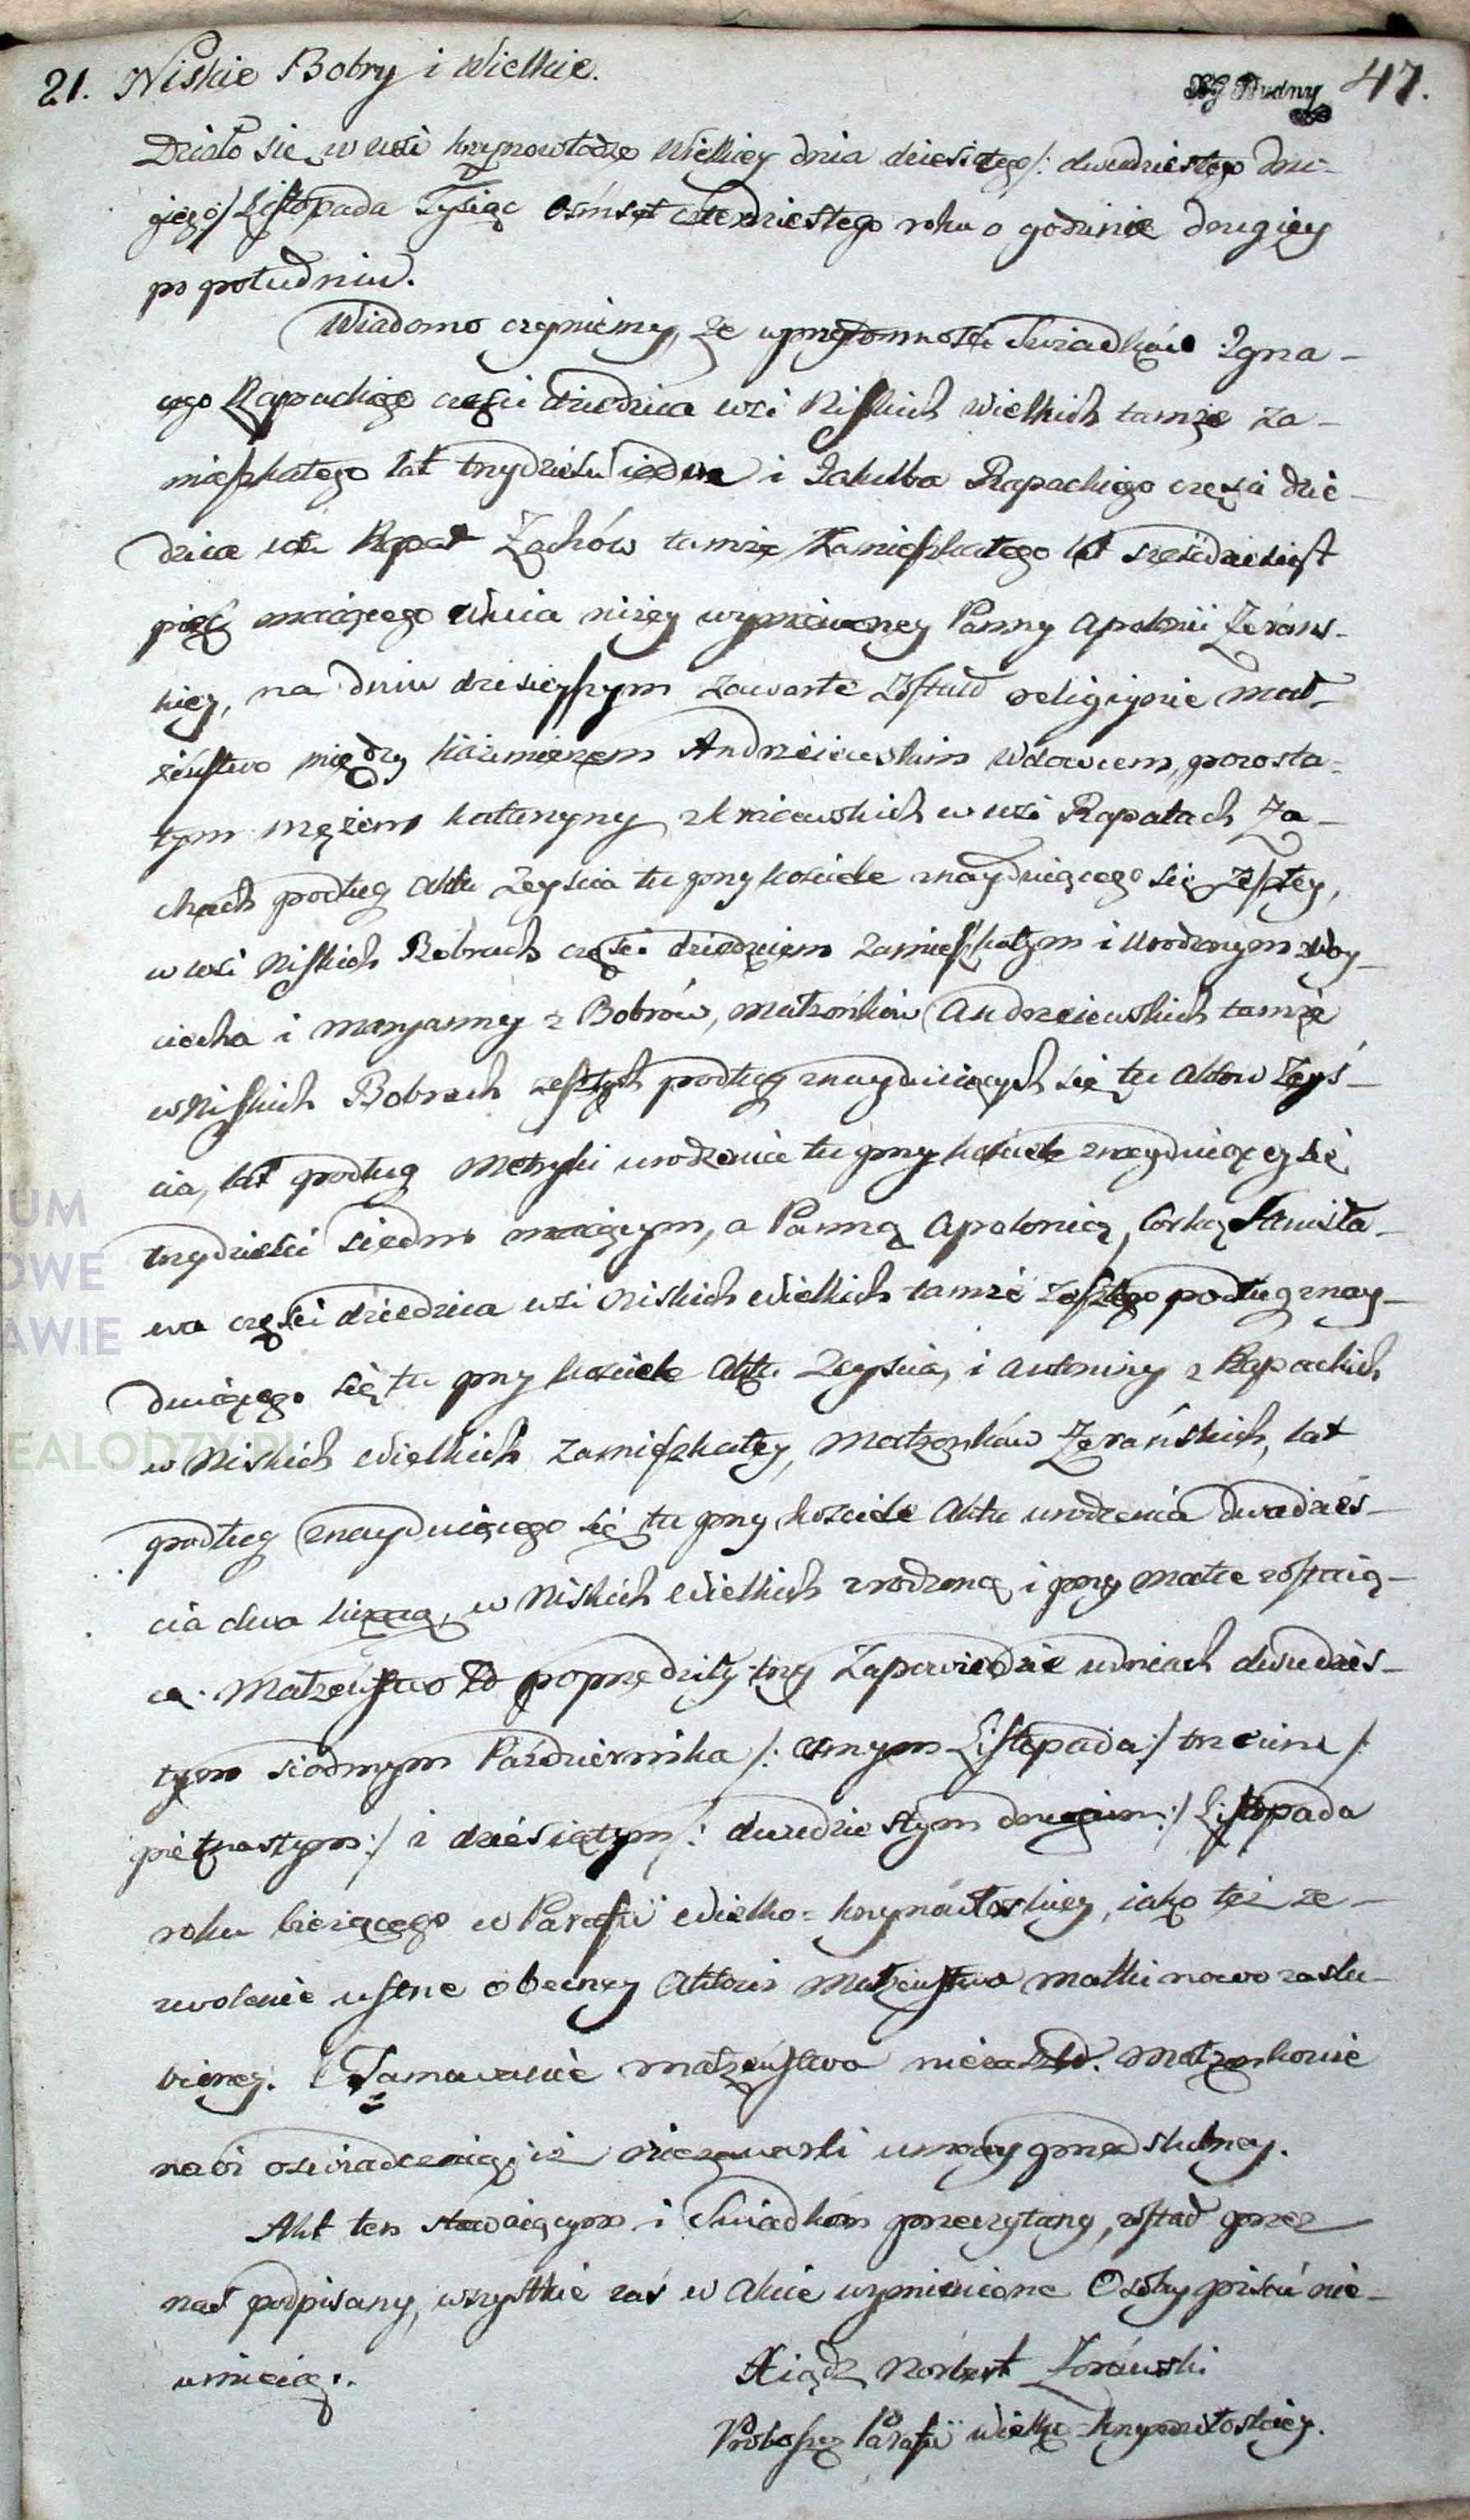 21. Niskie Bobry i Wielkie.
47.
Działo się w wsi Krzynowłodze Wielkiey dnia dziesiątego /: dwudziestego dru-
giego :/ Listopada Tysiąc Osmset czterdziestego roku o godzinie drugiey
po południu.
Wiadomo czyniemy, że w przytomności Swiadków Igna-
cego Rapackiego części dziedzica wsi Niskich Wielkich tamże za-
mieszkałego lat trzydzieści i Jakuba Rapackiego części dzie-
dzica wsi Rapat Żachów tamże zamieszkałego lat sześćdziesiąt
pięć maiącego Wuia niżey wymienioney Panny Apolonii Żerańs-
kiey, na dniu dzisieyszym zawarte zostało religiynie mał-
żeństwo między Kazimierzem Andrzeiewskim Wdowcem, pozosta-
łym mężem Katarzyny z w wsi Rapatach Ża-
chach podług Aktu Zeyścia tu przy kościele znayduiącego się zeszłey,
w wsi Niskich Bobrach części dziedzicem zamieszkałym i urodzonym z Woy-
ciecha i Maryanny z Bobrów, Małżonków Andrzeiewskich tamże
w Niskich Bobrach zeszłych podług znayduiących się tu Aktów Zeyś-
cia, lat podług Metryki urodzenia tu przy kościele znayduiącey się
trzydzieści siedm maiącym, a Panną Apolonią, Córką Stanisła-
wa części dziedzica wsi Niskich Wielkich tamże zeszłego podług znay-
duiącego się tu przy kościele Aktu Zeyścia, i Antoniny z Rapackich
w Niskich Wielkich zamieszkałey, Małżonków Żerańskich, lat
podług znayduiącego się tu przy kościele Aktu urodzenia dwadzieś-
cia dwa liczącą, w Niskich Wielkich zrodzoną i przy matce zostaią-
cą. Małżeństwo to poprzedziły trzy Zapowiedzie w dniach dwudzies-
tym siodmym Października /: osmym Listopada :/ trzecim /:
piętnastym :/ i dziesiątym /: dwudziestym drugim :/ Listopada
roku bieżącego w Parafii Wielko-Krzynowłoskiey, iako też ze-
zwolenie ustne obecney Aktowi Małżeństwa matki nowo zaślu-
bioney. Tamowanie małżeństwa nie zaszło. Małżonkowie
nowi oświadczaią, iż nie zawarli umowy przedślubney.
Akt ten stawaiącym i Swiadkom przeczytany, został przez
nas podpisany, wszystkie zaś w Akcie wymienione Osoby pisać nie-
umieią.
Xiądz Norbert Żórawski
Proboszcz Parafii Wielko-Krzynowłoskiey.